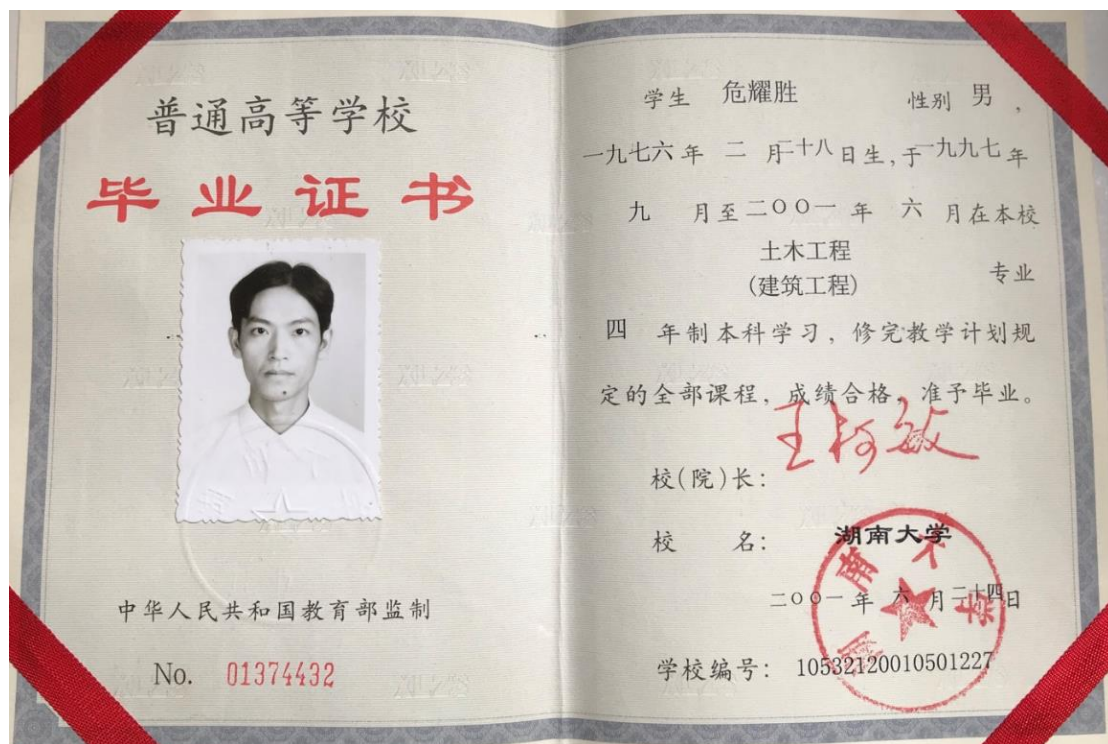 普通高等学校
毕业证书
中华人民共和国教育部监制
No. 01374432
学生 危耀胜 性别 男，
一九七六年 二 月二十八日生，于一九九七年
九 月至二〇〇一 年 六 月在本校
土木工程
(建筑工程) 专业
四 年制本科学习，修完教学计划规
定的全部课程，成绩合格，准予毕业。
王柯敏
校(院)长：
校 名： 湖南大学
湖南大学
二〇〇一年 六 月二十四日
学校编号： 10532120010501227